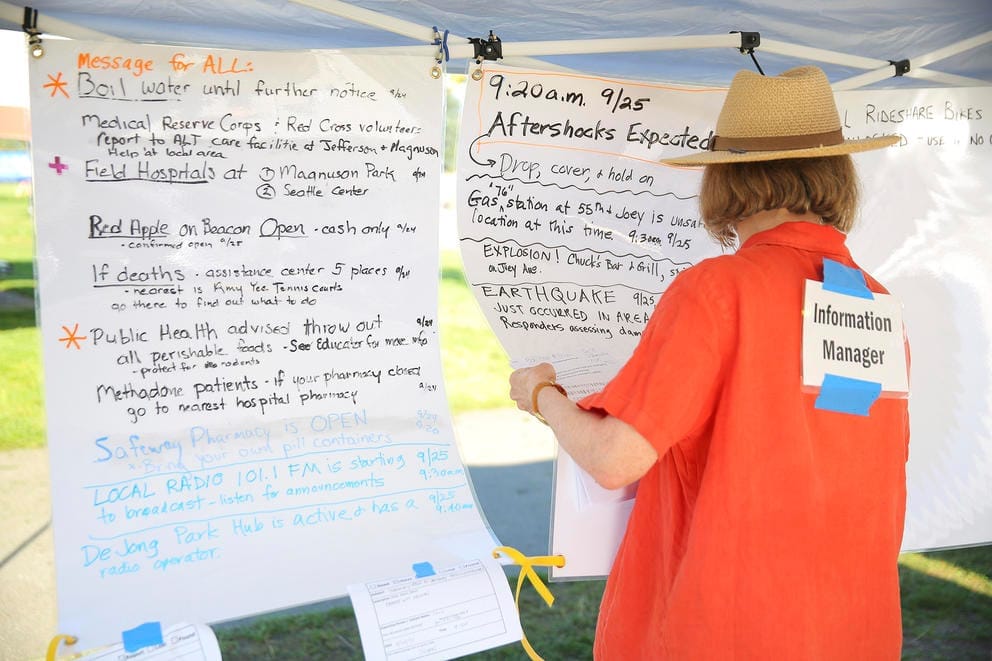 Message for ALL:
* Boil water until further notice 9/24
Medical Reserve Corps & Red Cross volunteers
report to ALT care facilities at Jefferson & Magnuson
Help at local area
+ Field Hospitals at ① Magnuson Park 9/24
② Seattle Center
Red Apple on Beacon Open - cash only 9/24
- confirmed open 9/25
If deaths - assistance center 5 places 9/24
- nearest is Amy Yee Tennis Courts
go there to find out what to do
* Public Health advised throw out 9/24
all perishable foods - See Educator for more info
- protect for rodents
Methadone patients - if your pharmacy closed 9/24
go to nearest hospital pharmacy
Safeway Pharmacy is OPEN 9/24
9:20
* Bring your own pill containers
LOCAL RADIO 101.1 FM is starting 9/25
to broadcast - listen for announcements 9:30am
De Jong Park Hub is active & has a 9/25
radio operator. 9:40am
9:20 a.m. 9/25
Aftershocks Expected
Drop, cover, & hold on
Gas "76" station at 55th & Joey is unsafe
location at this time. 9:30am 9/25
EXPLOSION! Chuck's Bar & Grill,
on Joey Ave.
EARTHQUAKE 9/25
JUST OCCURRED IN AREA
Responders assessing
RIDESHARE BIKES
- USE IF NO
Information
Manager